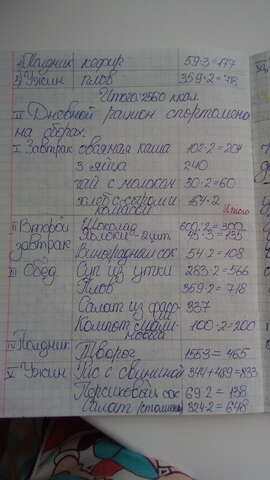 4) Полдник кефир 59·3=177
5) Ужин плов 359·2=718
Итого: 2560 ккал.
II Дневной рацион спортсмена
на сборах.
I Завтрак овсяная каша 102·2=204
3 яйца 240
чай с молоком 30·2=60
хлеб с сыром и 64·2
колбасой Итого
II Второй Шоколад
завтрак Яблоки - 2 шт
Виноградный сок 54·2=108
III Обед Суп из утки 283·2=566
Плов 359·2=718
Салат из фасо- 337
ли
Компот 100·2=200
IV Полдник Творог 155·3=465
V Ужин Рис с свининой 344+489=833
Персиковый сок 69·2=138
Салат 324·2=648